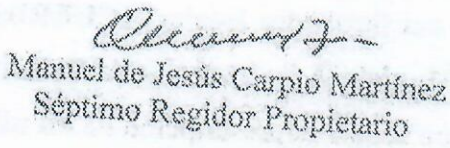 Manuel de Jesús Carpio Martínez
Séptimo Regidor Propietario